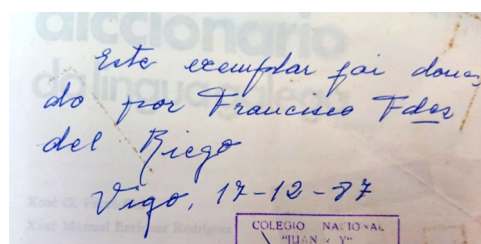 diccionario
da lingua galega
Este exemplar foi doua
do por Francisco Fdes
del Riego
Vigo, 17-12-87
Xosé Manuel Enríquez Rodríguez
COLEGIO NACIONAL
"JUAN